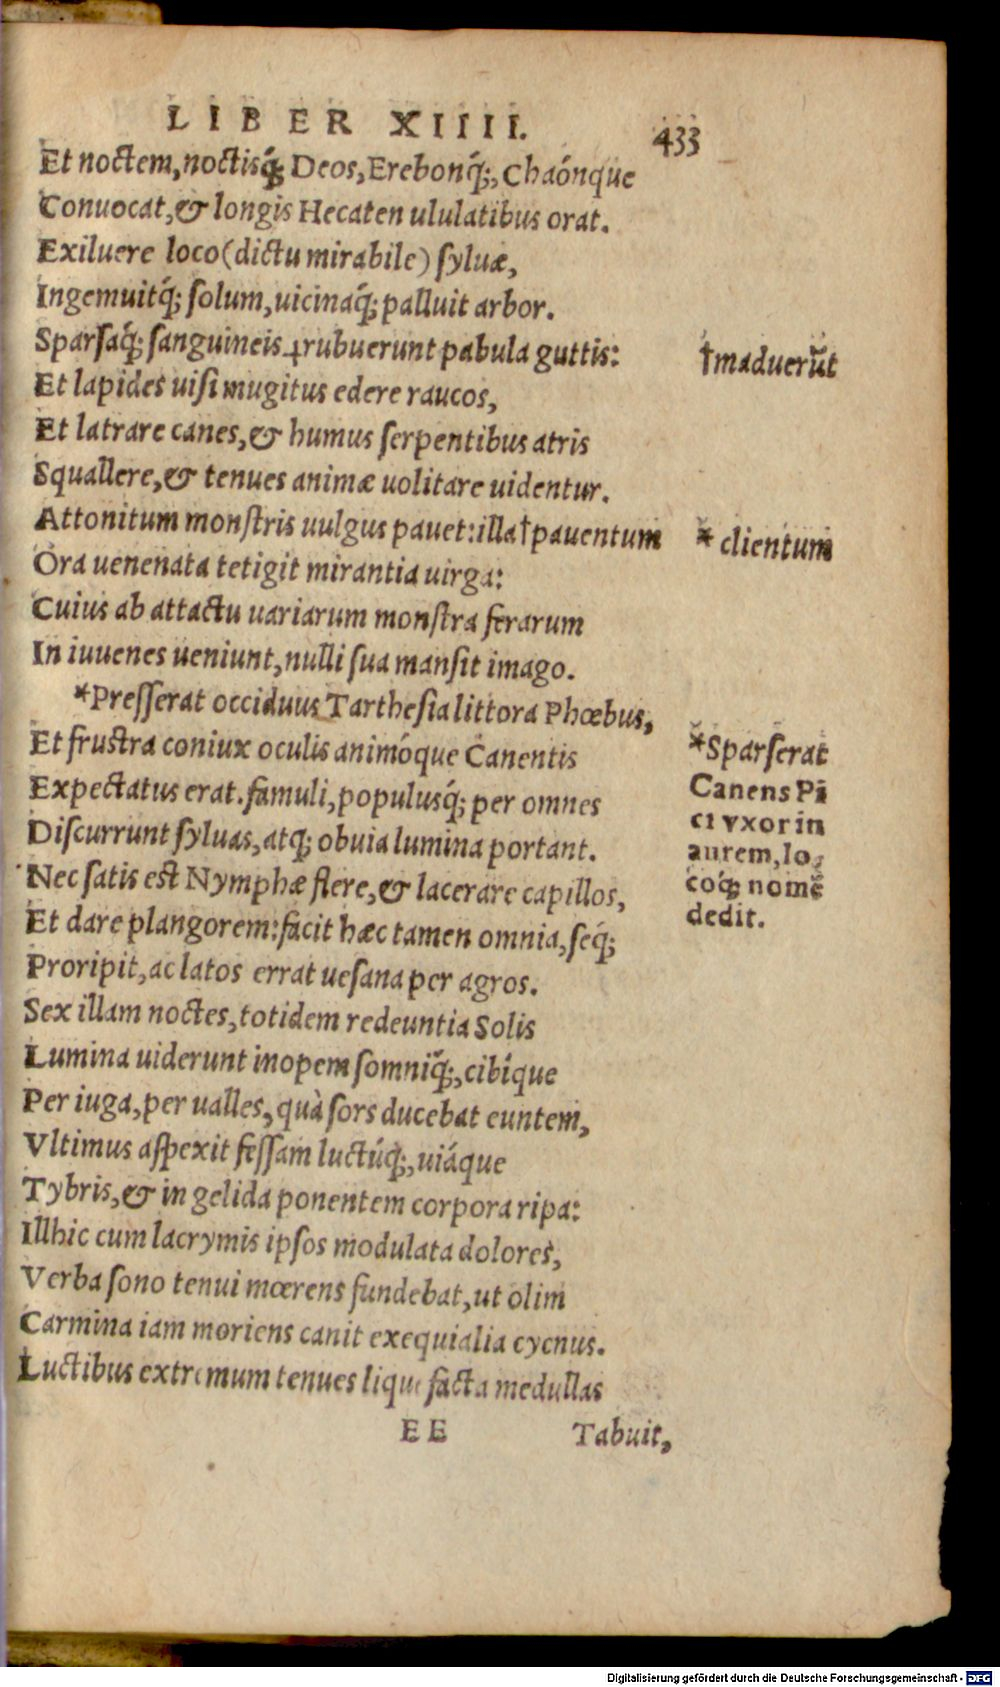 LIBER XIIII. 433
Et noctem, noctisq́; Deos, Erebonq́;, Chaónque
Conuocat, & longis Hecaten ululatibus orat.
Exiluere loco (dictu mirabile) syluæ,
Ingemuitq́; solum, uicinaq́; palluit arbor.
Sparsaq́; sanguineis †rubuerunt pabula guttis:
†maduerũt
Et lapides uisi mugitus edere raucos,
Et latrare canes, & humus serpentibus atris
Squallere, & tenues animæ uolitare uidentur.
Attonitum monstris uulgus pauet: illa †pauentum
* clientum
Ora uenenata tetigit mirantia uirga:
Cuius ab attactu uariarum monstra ferarum
In iuuenes ueniunt, nulli sua mansit imago.
*Presserat occiduus Tarthesia littora Phœbus,
Et frustra coniux oculis animóque Canentis
Expectatus erat. famuli, populusq́; per omnes
Discurrunt syluas, atq; obuia lumina portant.
Nec satis est Nymphæ flere, & lacerare capillos,
Et dare plangorem: facit hæc tamen omnia, seq́;
Proripit, ac latos errat uesana per agros.
*Sparserat
Canens Pi
ci vxor in
aurem, lo-
coq́; nomẽ
dedit.
Sex illam noctes, totidem redeuntia Solis
Lumina uiderunt inopem somniq́;, cibíque
Per iuga, per ualles, quà sors ducebat euntem,
Vltimus aspexit fessam luctúq́;, uiáque
Tybris, & in gelida ponentem corpora ripa:
Illhic cum lacrymis ipsos modulata dolores,
Verba sono tenui mœrens fundebat, ut olim
Carmina iam moriens canit exequialia cycnus.
Luctibus extremum tenues liquefacta medullas
EE Tabuit,
Digitalisierung gefördert durch die Deutsche Forschungsgemeinschaft - DFG